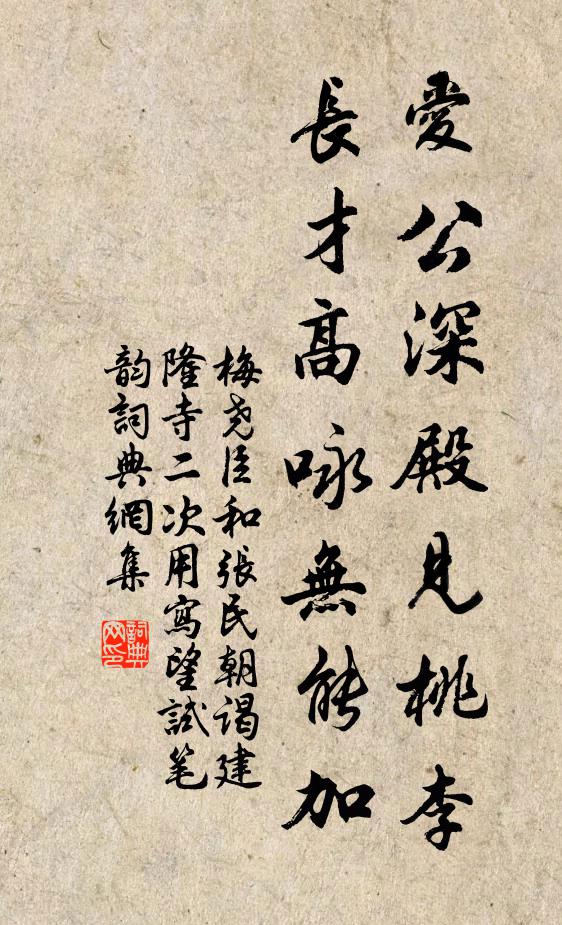 愛公深殿見桃李
長才高咏無能加
梅尧臣和張民朝谒建
隆寺二次用寫望試笔
韵詞典網集
詞典
网印